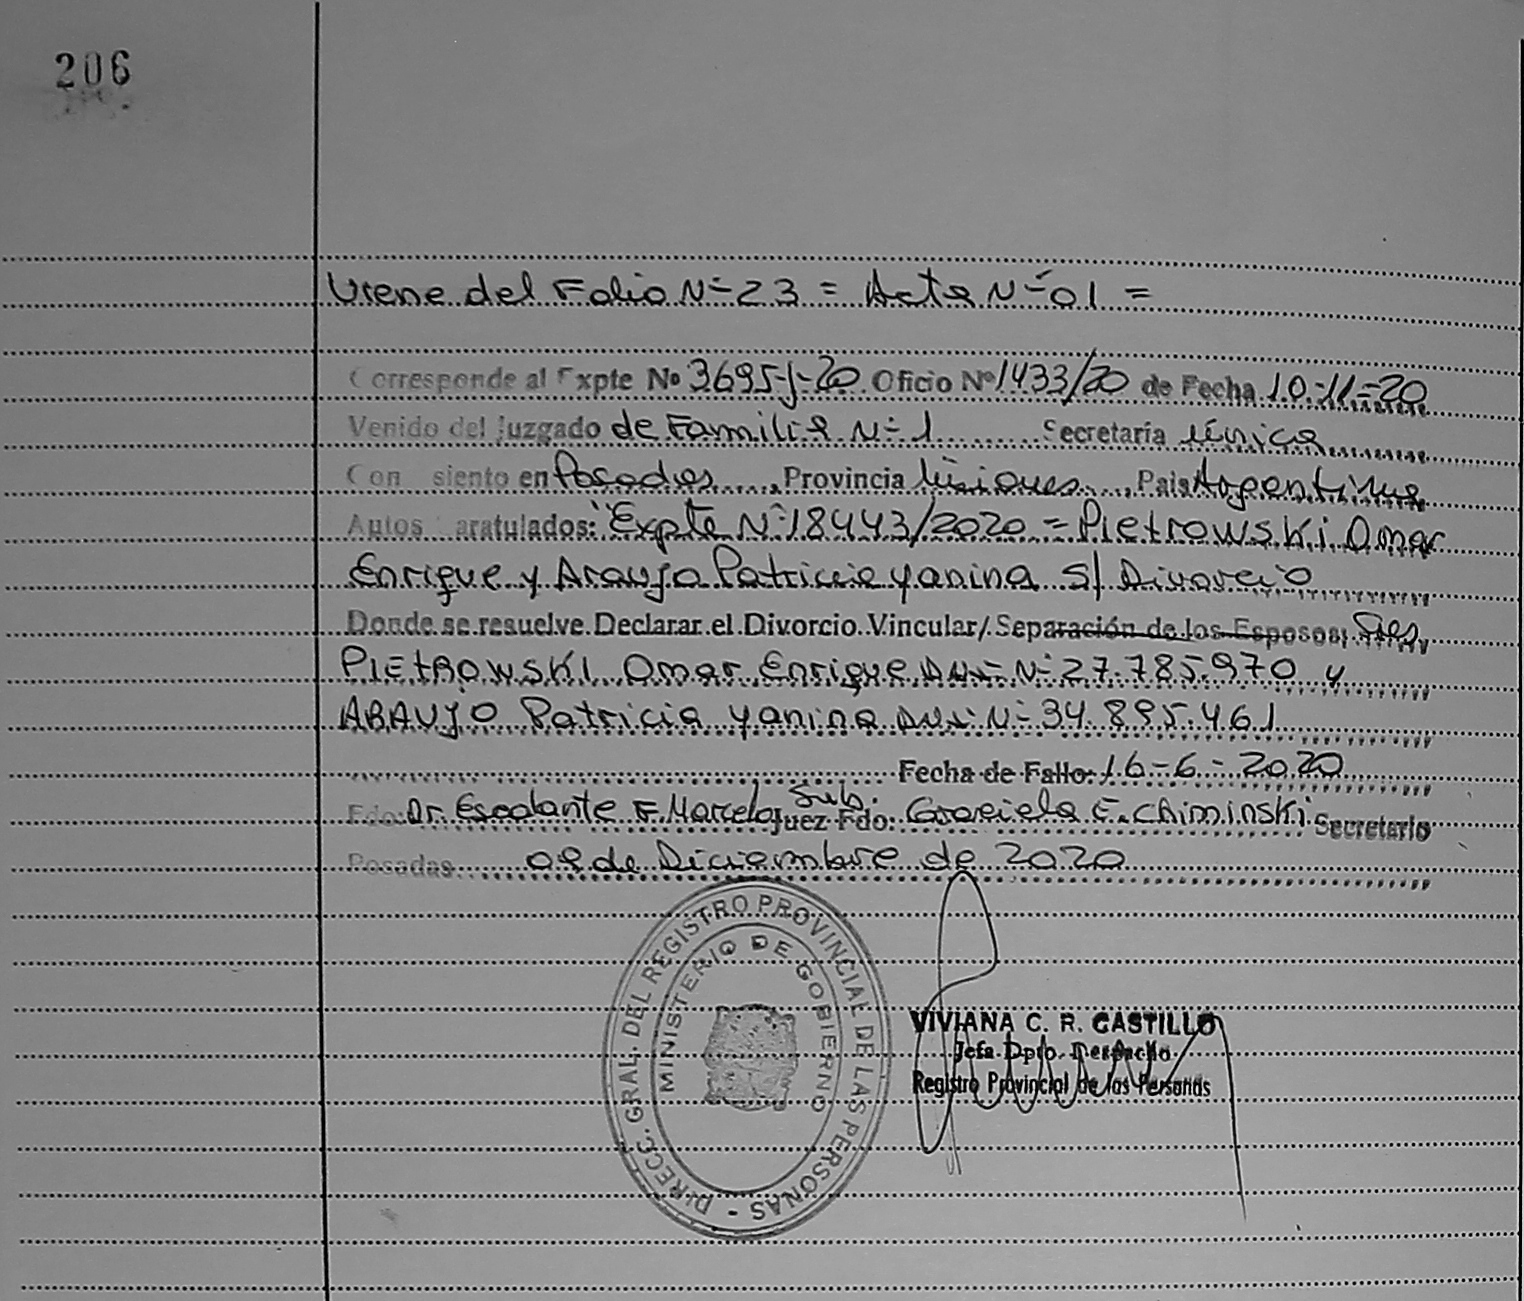 206
Viene del Folio Nº 23 = Acta Nº 01 =
Corresponde al Expte Nº 3695-J-20 Oficio Nº 1433/20 de Fecha 10-11-20
Venido del Juzgado de Familia Nº 1 Secretaría única
Con siento en Posadas, Provincia Misiones, Pais Argentina
Autos aratulados: "Expte Nº 18443/2020 = Pietrowski Omar
Enrique y Araujo Patricia Yanina S/ Divorcio
Donde se resuelve Declarar el Divorcio Vincular/Separación de los Esposos;
PIETROWSKI Omar Enrique DNI Nº 27.785.970 y
ARAUJO Patricia Yanina DNI Nº 34.895.461
Fecha de Fallo: 16-6-2020
Fdo: Dr. Escalante F. Marcelo Juez Sub. Fdo: Graciela E. Chiminski Secretario
Posadas 09 de Diciembre de 2020
DIRECC. GRAL. DEL REGISTRO PROVINCIAL DE LAS PERSONAS -
MINISTERIO DE GOBIERNO
VIVIANA C. R. CASTILLO
Jefa Dpto. Despacho
Registro Provincial de las Personas